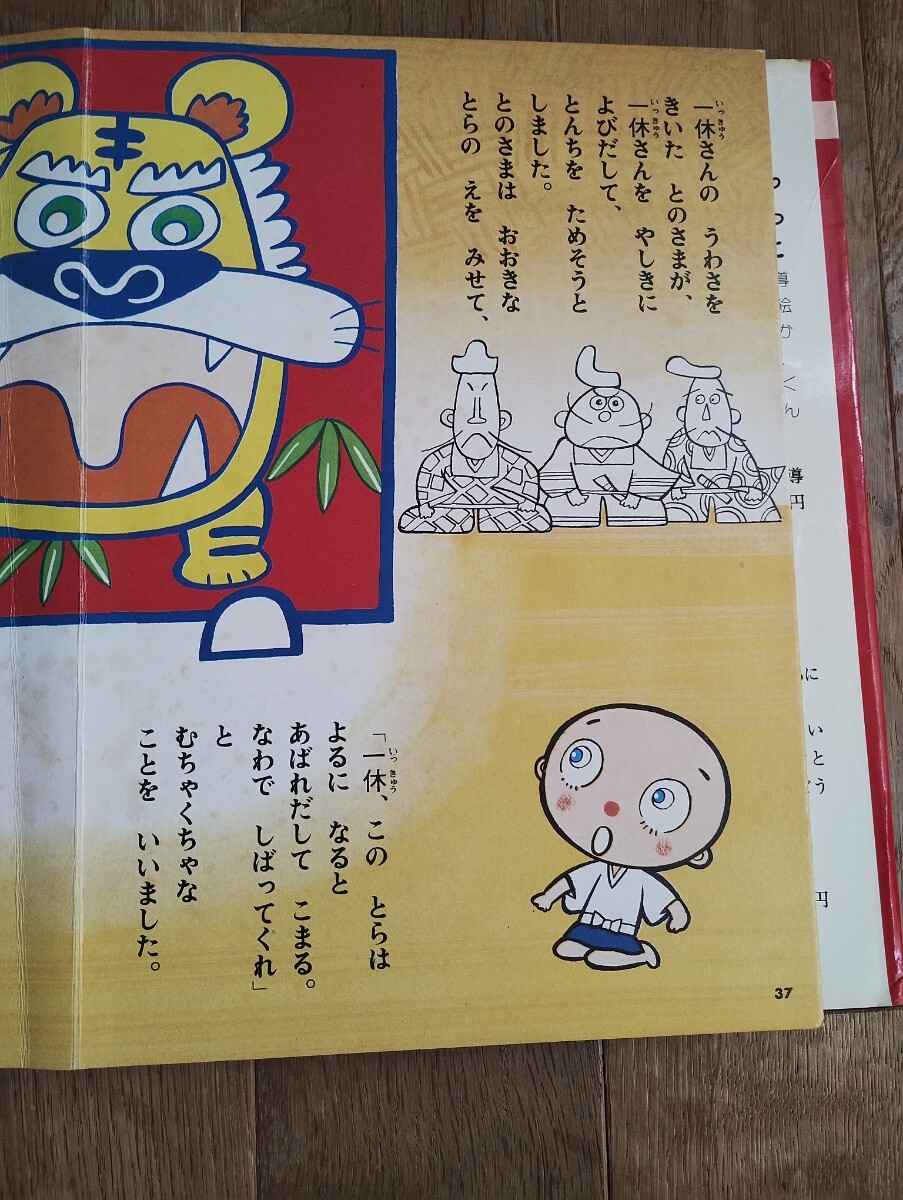 一休さんの　うわさを
きいた　とのさまが、
一休さんを　やしきに
よびだして、
とんちを　ためそうと
しました。
とのさまは　おおきな
とらの　えを　みせて、
「一休、この　とらは
よるに　なると
あばれだして　こまる。
なわで　しばってくれ」
と
むちゃくちゃな
ことを　いいました。
37